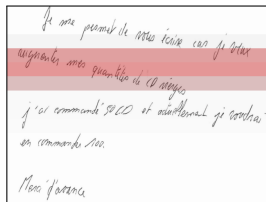 Je me permet de vous écrire car je veux
augmenter mes quantités de CD vierges
j'ai commandé 50 CD et actuellement je voudrais
en commander 100.
Merci d'avance